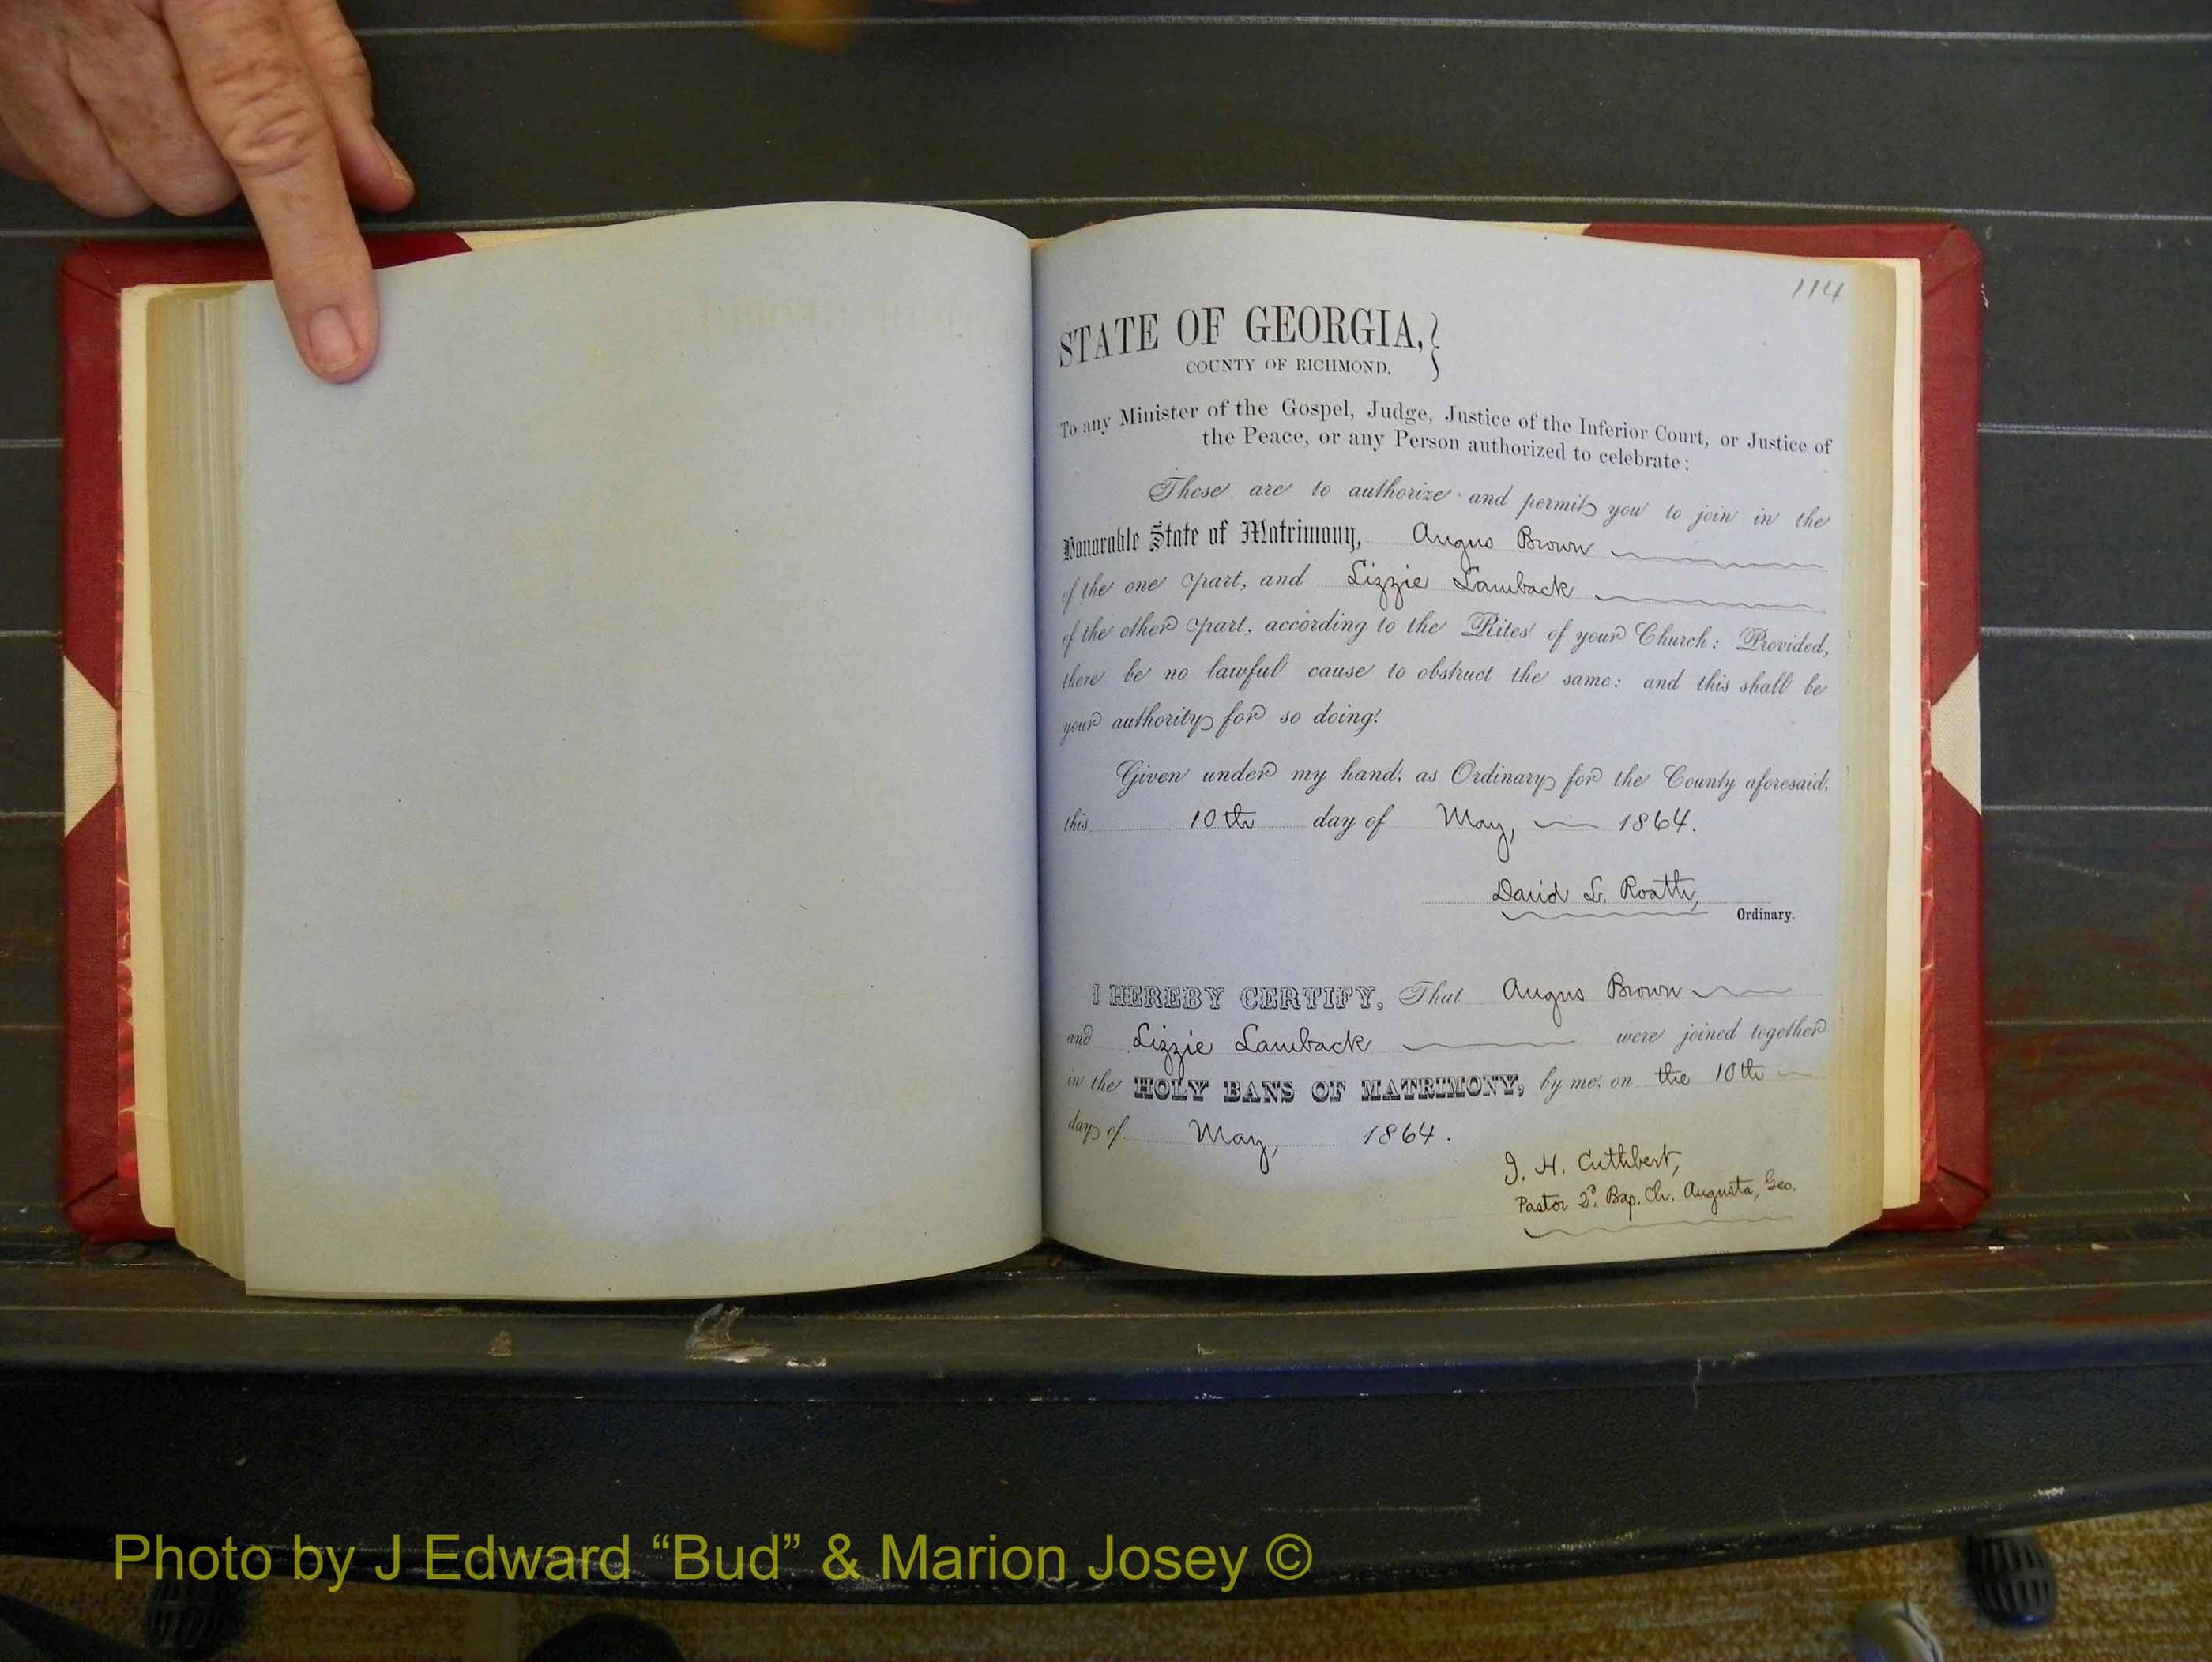 114
STATE OF GEORGIA,
COUNTY OF RICHMOND.
To any Minister of the Gospel, Judge, Justice of the Inferior Court, or Justice of
the Peace, or any Person authorized to celebrate:
These are to authorize and permit you to join in the
Honorable State of Matrimony, Angus Brown
of the one part, and Lizzie Lamback
of the other part, according to the Rites of your Church: Provided,
there be no lawful cause to obstruct the same: and this shall be
your authority for so doing.
Given under my hand, as Ordinary for the County aforesaid,
this 10th day of May, 1864.
David L. Roath,
Ordinary.
I HEREBY CERTIFY, That Angus Brown
and Lizzie Lamback were joined together
in the HOLY BANS OF MATRIMONY, by me, on the 10th
day of May, 1864.
J. H. Cuthbert,
Pastor 2d. Bap. Ch. Augusta, Geo.
Photo by J Edward “Bud” & Marion Josey ©